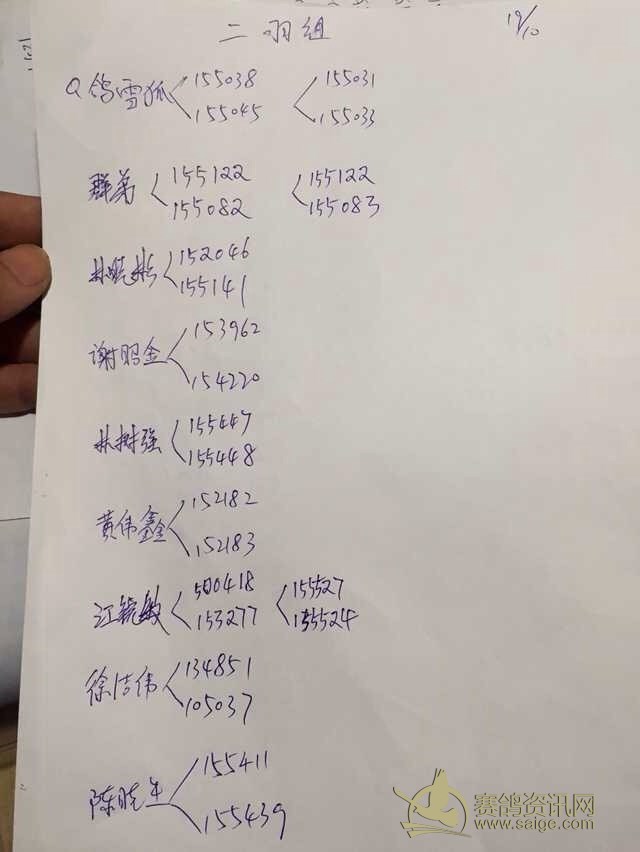 二羽组 19/10
Q鸽雪狐 155038 155031
155045 155033
群弟 155122 155122
155082 155083
林晓彬 152046
155141
谢昭金 153962
154220
林树强 155447
155448
黄伟鑫 152182
152183
江锐敏 500418 155527
153277 155524
徐洁伟 134851
105037
陈晓生 155411
155439
赛鸽资讯网
www.saige.com